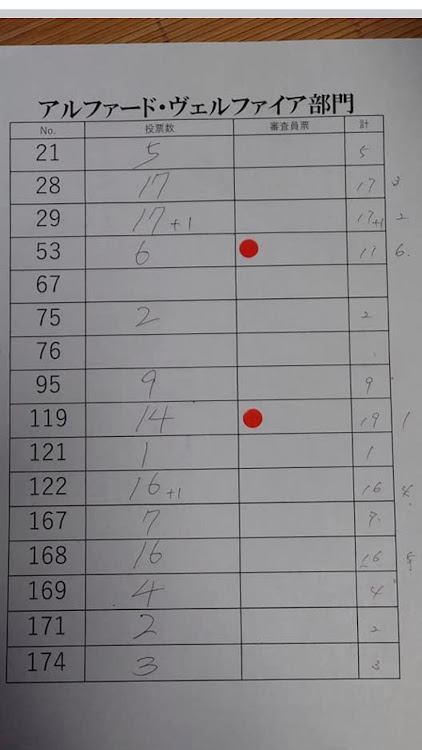 アルファード・ヴェルファイア部門
No. 投票数 審査員票 計
21 5 5
28 17 17 3
29 17 +1 17 +1 2
53 6 11 6.
67
75 2 2
76
95 9 9
119 14 19 1
121 1 1
122 16 +1 16 4
167 7 7
168 16 16 5
169 4 4
171 2 2
174 3 3